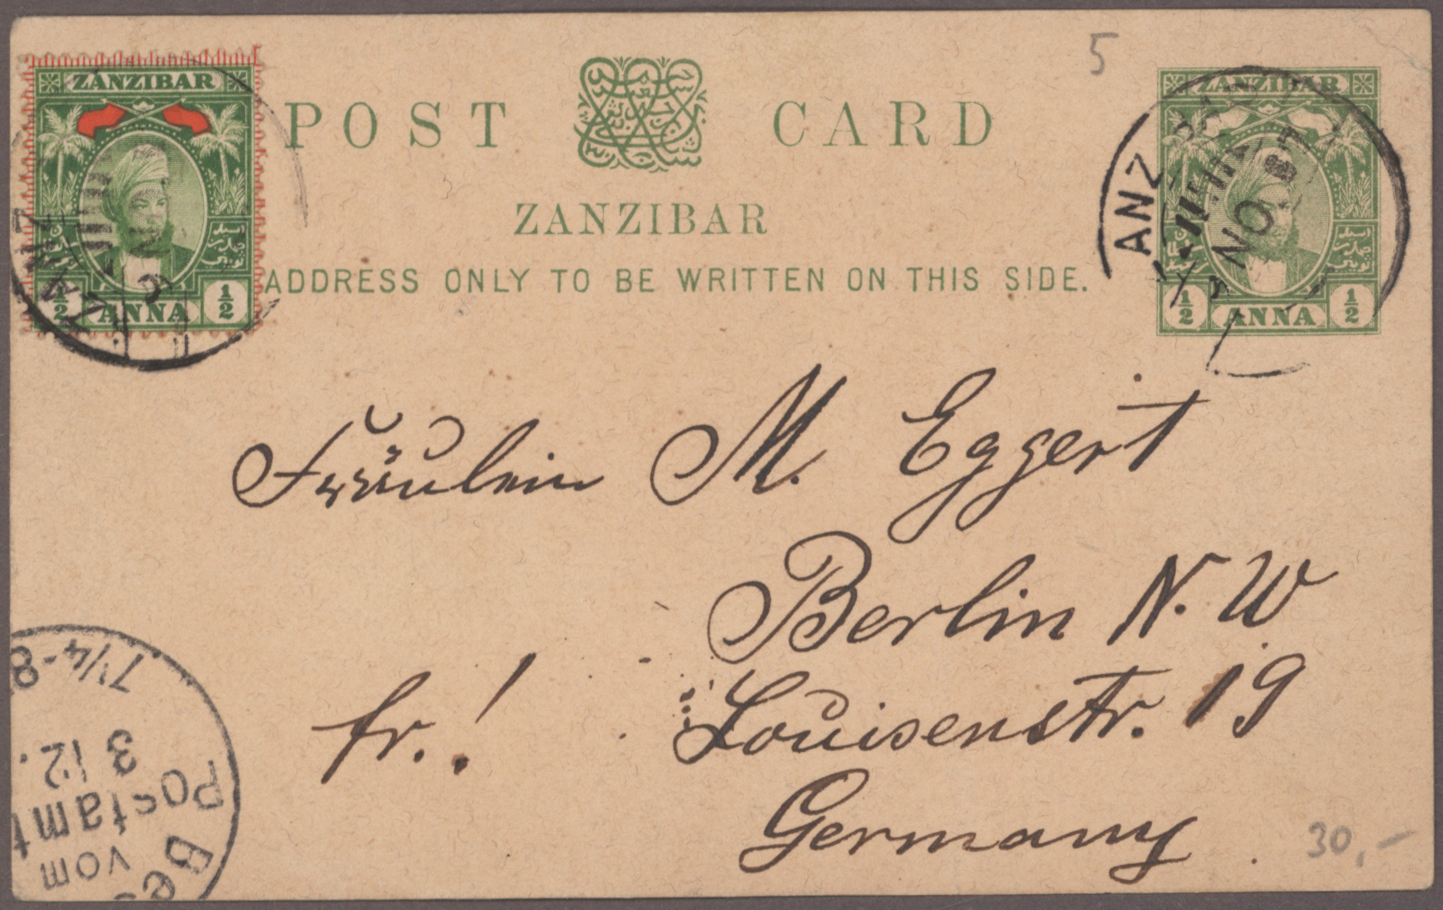 5
ZANZIBAR
½ ANNA ½
POST CARD
ZANZIBAR
ADDRESS ONLY TO BE WRITTEN ON THIS SIDE.
ZANZIBAR
½ ANNA ½
ZANZ
NO
ANZ
Fräulein M. Eggert
Berlin N. W
Louisenstr. 19
fr.!
Germany
7¼-8
3 12.
Postamt
vom
30,-